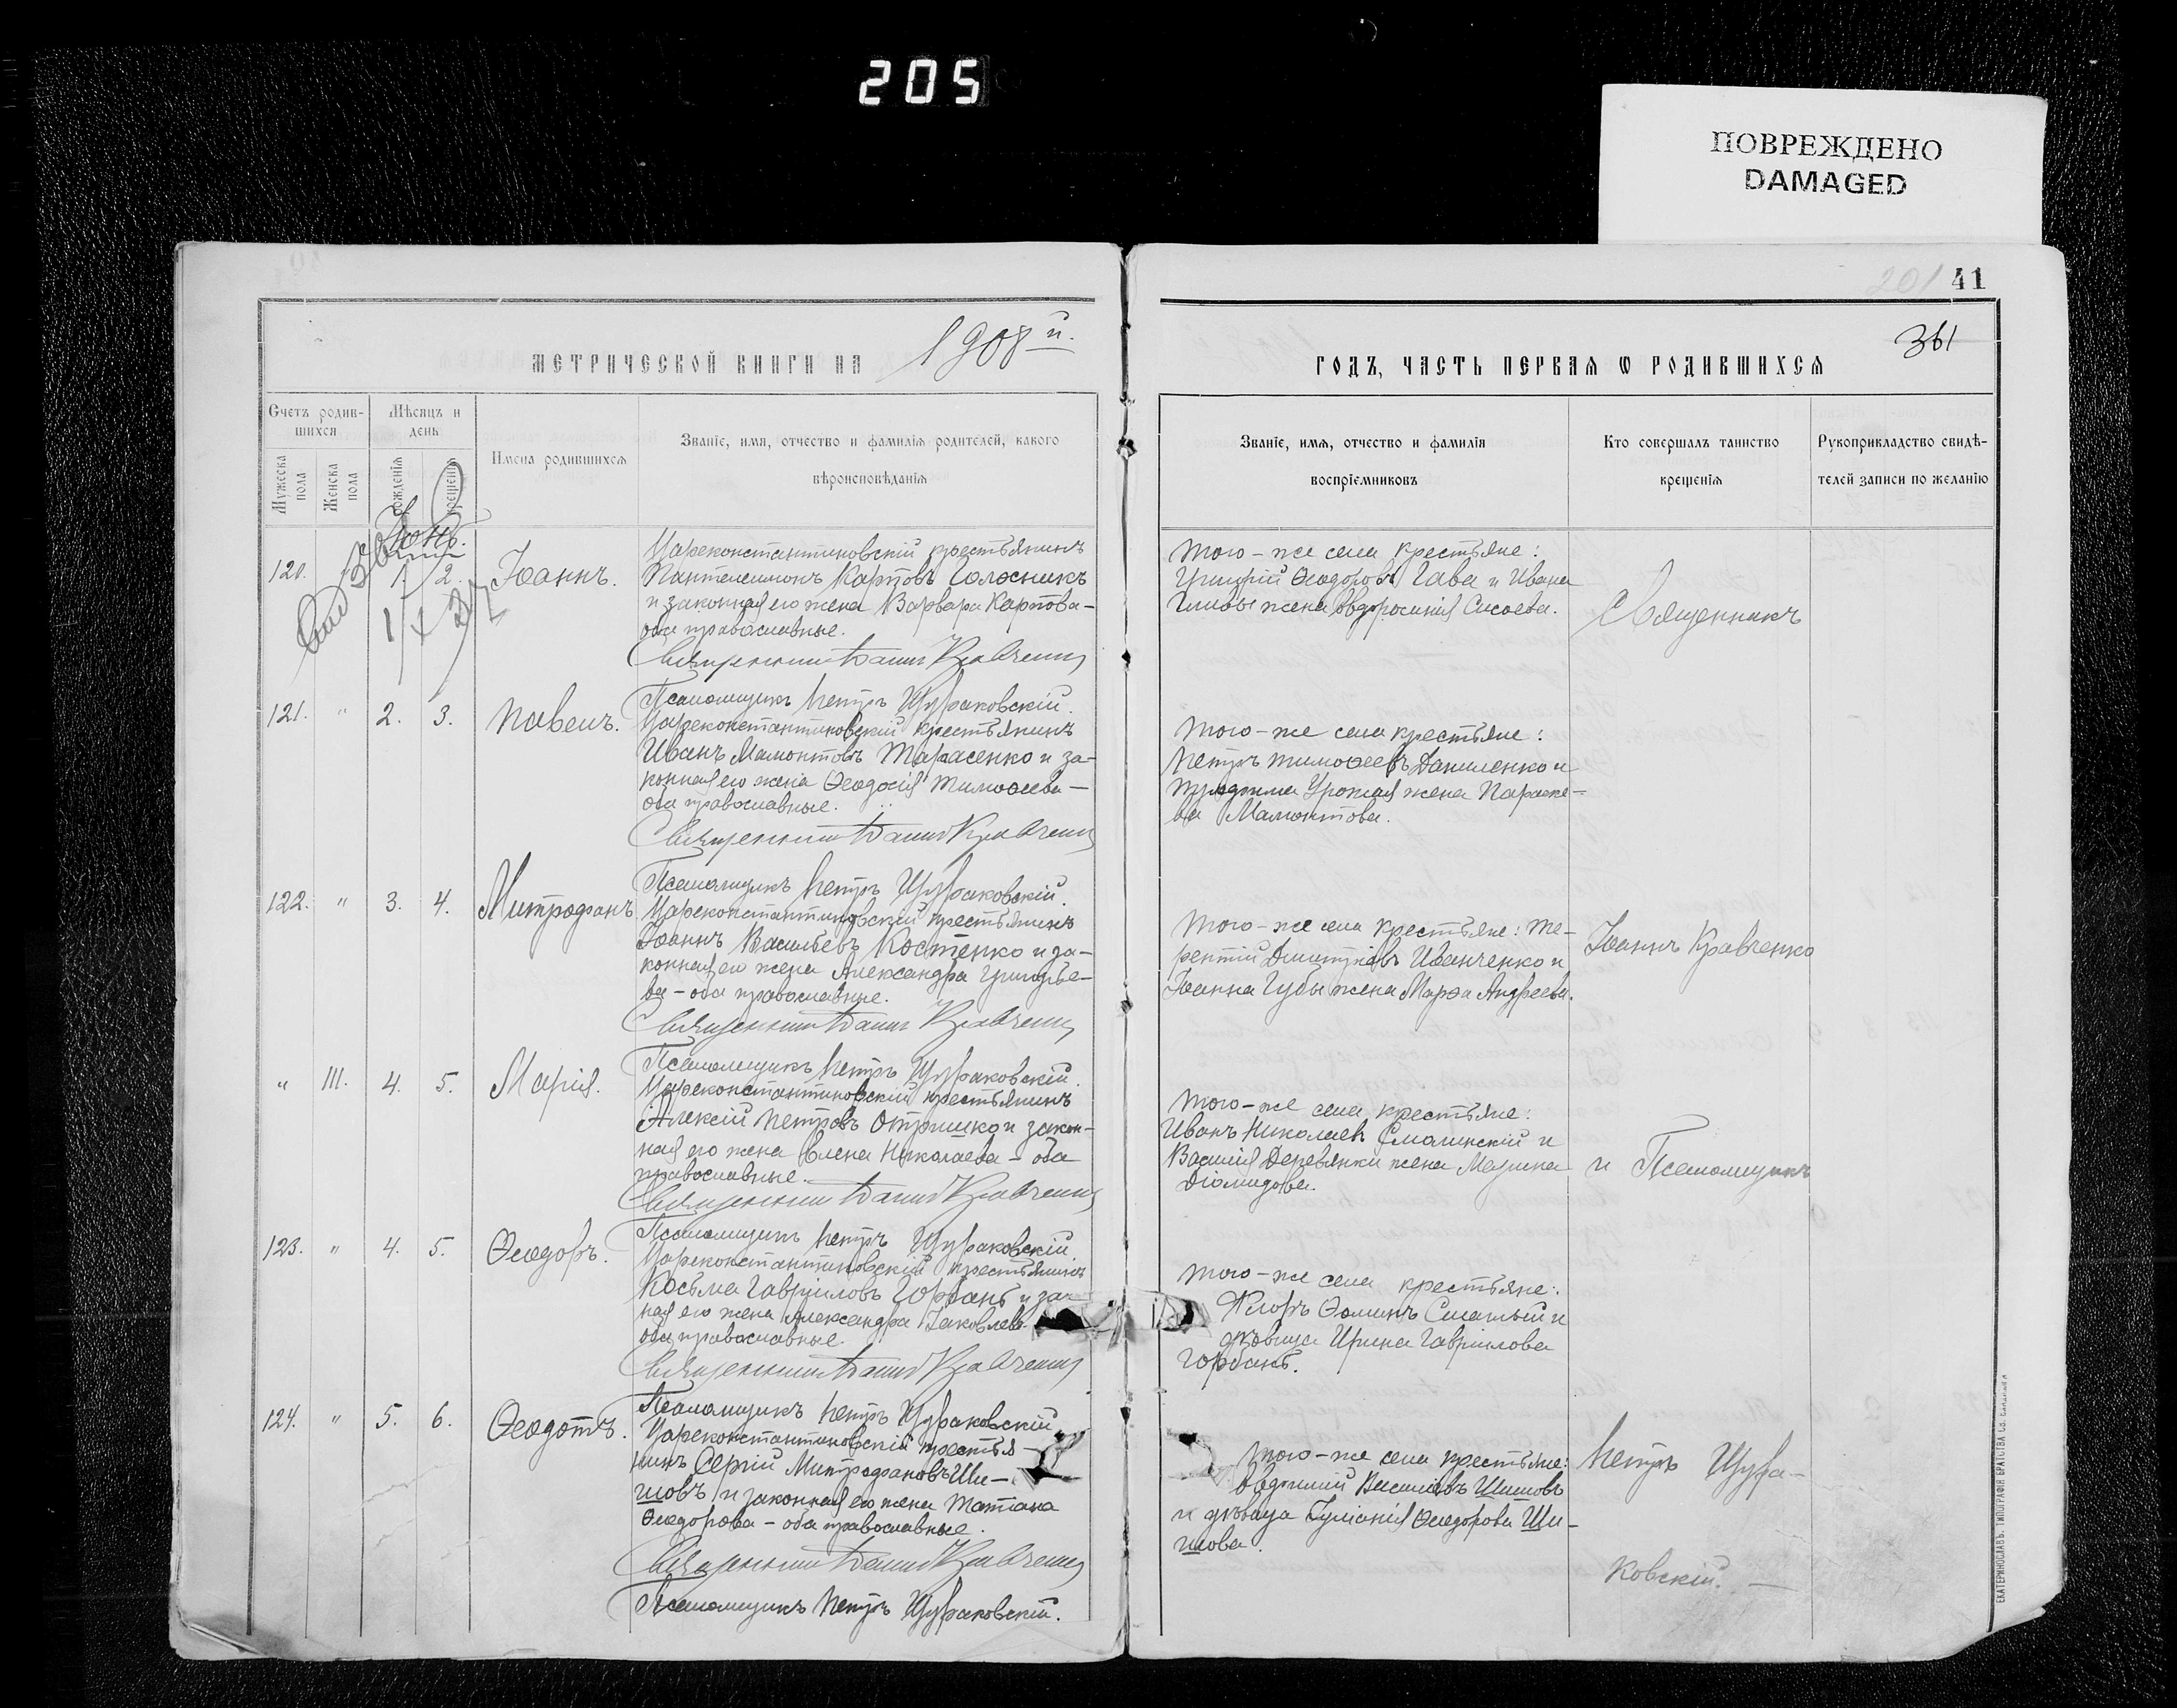 205
ПОВРЕЖДЕНО
DAMAGED
201 41
361
МЕТРИЧЕСКОЙ КНИГИ НА 1908 й.
ГОДЪ, ЧАСТЬ ПЕРВАЯ Ѡ РОДИВШИХСЯ
Счетъ родив-
шихся
Мужеска пола
Женска пола
Мѣсяцъ и
день
рожденія
крещенія
Имена родившихся
Званіе, имя, отчество и фамилія родителей, какого
вѣроисповѣданія
Званіе, имя, отчество и фамилія
воспріемниковъ
Кто совершалъ таинство
крещенія
Рукоприкладство свидѣ-
телей записи по желанію
120. 1. 2. Іоаннъ.
Цареконстантиновскій крестьянинъ
Пантелеимонъ Карповъ Голосникъ
и законная его жена Варвара Карпова –
оба православные.
Священникъ Іоаннъ Кравченко
Того-же села крестьяне:
Григорій Ѳеодоровъ Гава и Ивана
жена Евдросинія Сисоева.
121. " 2. 3. Павелъ.
Псаломщикъ Петръ Щураковскій.
Цареконстантиновскій крестьянинъ
Иванъ Мамонтовъ Тарасенко и за-
конная его жена Ѳеодосія Тимоѳеева –
оба православные.
Священникъ Іоаннъ Кравченко
Того-же села крестьяне:
Петръ Тимоѳеевъ Даниленко и
жена Параске-
ва Мамонтова.
122. " 3. 4. Митрофанъ
Псаломщикъ Петръ Щураковскій.
Цареконстантиновскій крестьянинъ
Іоаннъ Васильевъ Костенко и за-
конная его жена Александра Григорье-
ва – оба православные.
Священникъ Іоаннъ Кравченко
Того-же села крестьяне: Те-
рентій Димитріевъ Иванченко и
Іоанна Губы жена Марѳа Андреева.
" 111. 4. 5. Марія.
Псаломщикъ Петръ Щураковскій.
Цареконстантиновскій крестьянинъ
Алексій Петровъ Отришко и закон-
ная его жена Елена Николаева – оба
православные.
Священникъ Іоаннъ Кравченко
Того-же села крестьяне:
Иванъ Николаевъ Смалинскій и
Василія Деревянки жена Марина
Діомидова.
123. " 4. 5. Ѳеодоръ.
Псаломщикъ Петръ Щураковскій.
Цареконстантиновскій крестьянинъ
Косьма Гавріиловъ Горбань и за-
ная его жена Александра Іаковлева
оба православные.
Священникъ Іоаннъ Кравченко
Того-же села крестьяне:
Флоръ Ѳоминъ и
дѣвица Ирина Гавріилова
Горбань.
124. " 5. 6. Ѳеодотъ.
Псаломщикъ Петръ Щураковскій
Цареконстантиновскій крестья-
нинъ Сергій Митрофановъ Ши-
шовъ и законная его жена Татіана
Ѳеодорова – оба православные.
Священникъ Іоаннъ Кравченко
Псаломщикъ Петръ Щураковскій.
Того-же села крестьяне:
Евдокимъ Васильевъ Шишовъ
и дѣвица Іуліанія Ѳеодорова Ши-
шова.
Священникъ
Іоаннъ Кравченко
и Псаломщикъ
Петръ Щура-
ковскій. –
ЕКАТЕРИНОСЛАВЪ. ТИПОГРАФІЯ БРАТСТВА СВ. ВЛАДИМІРА